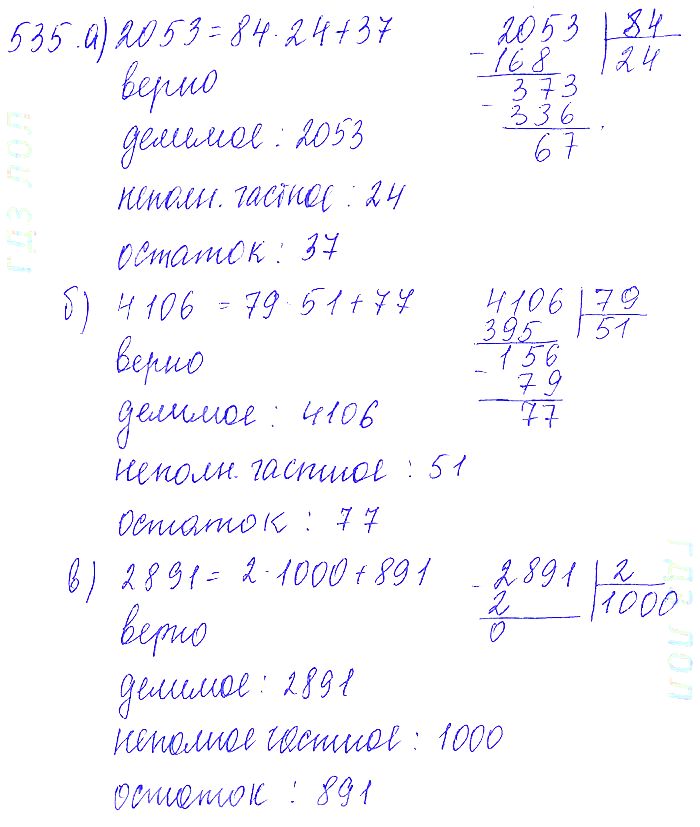 535. а) 2053 = 84 · 24 + 37
верно
делимое : 2053
неполн. частное : 24
остаток : 37
2053 | 84
- 168 | 24
373
- 336
67
б) 4106 = 79 · 51 + 77
верно
делимое : 4106
неполн. частное : 51
остаток : 77
4106 | 79
395 | 51
156
- 79
77
в) 2891 = 2 · 1000 + 891
верно
делимое : 2891
неполное частное : 1000
остаток : 891
- 2891 | 2
2 | 1000
0